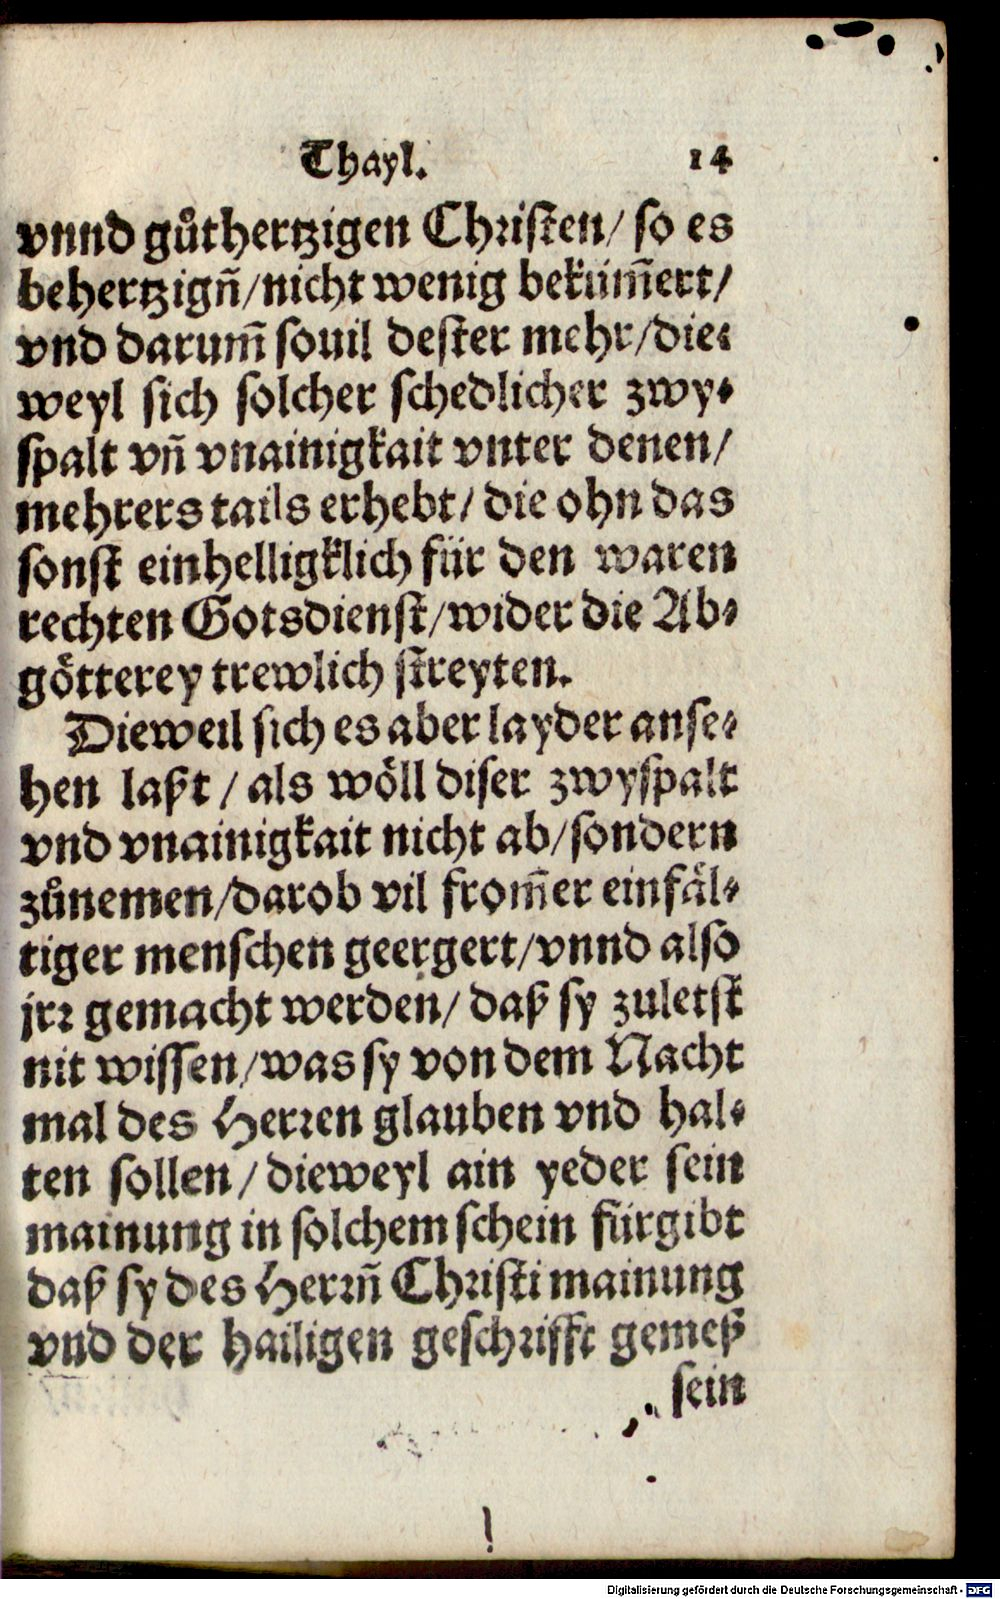 Thayl. 14
vnnd gůthertzigen Christen/ so es
behertzign̄/nicht wenig beküm̄ert/
vnd darum̄ souil dester mehr/die⸗
weyl sich solcher schedlicher zwy⸗
spalt vn̄ vnainigkait vnter denen/
mehrers tails erhebt/ die ohn das
sonst einhelligklich für den waren
rechten Gotsdienst/wider die Ab⸗
götterey trewlich streyten.
Dieweil sich es aber layder anse⸗
hen laßt / als wöll diser zwyspalt
vnd vnainigkait nicht ab/sondern
zůnemen/darob vil from̄er einfäl⸗
tiger menschen geergert/vnnd also
jrr gemacht werden/ daß sy zuletst
nit wissen/was sy von dem Nacht
mal des Herren glauben vnd hal⸗
ten sollen/ dieweyl ain yeder sein
mainung in solchem schein fürgibt
daß sy des Herrn̄ Christi mainung
vnd der hailigen geschrifft gemeß
sein
Digitalisierung gefördert durch die Deutsche Forschungsgemeinschaft - DFG